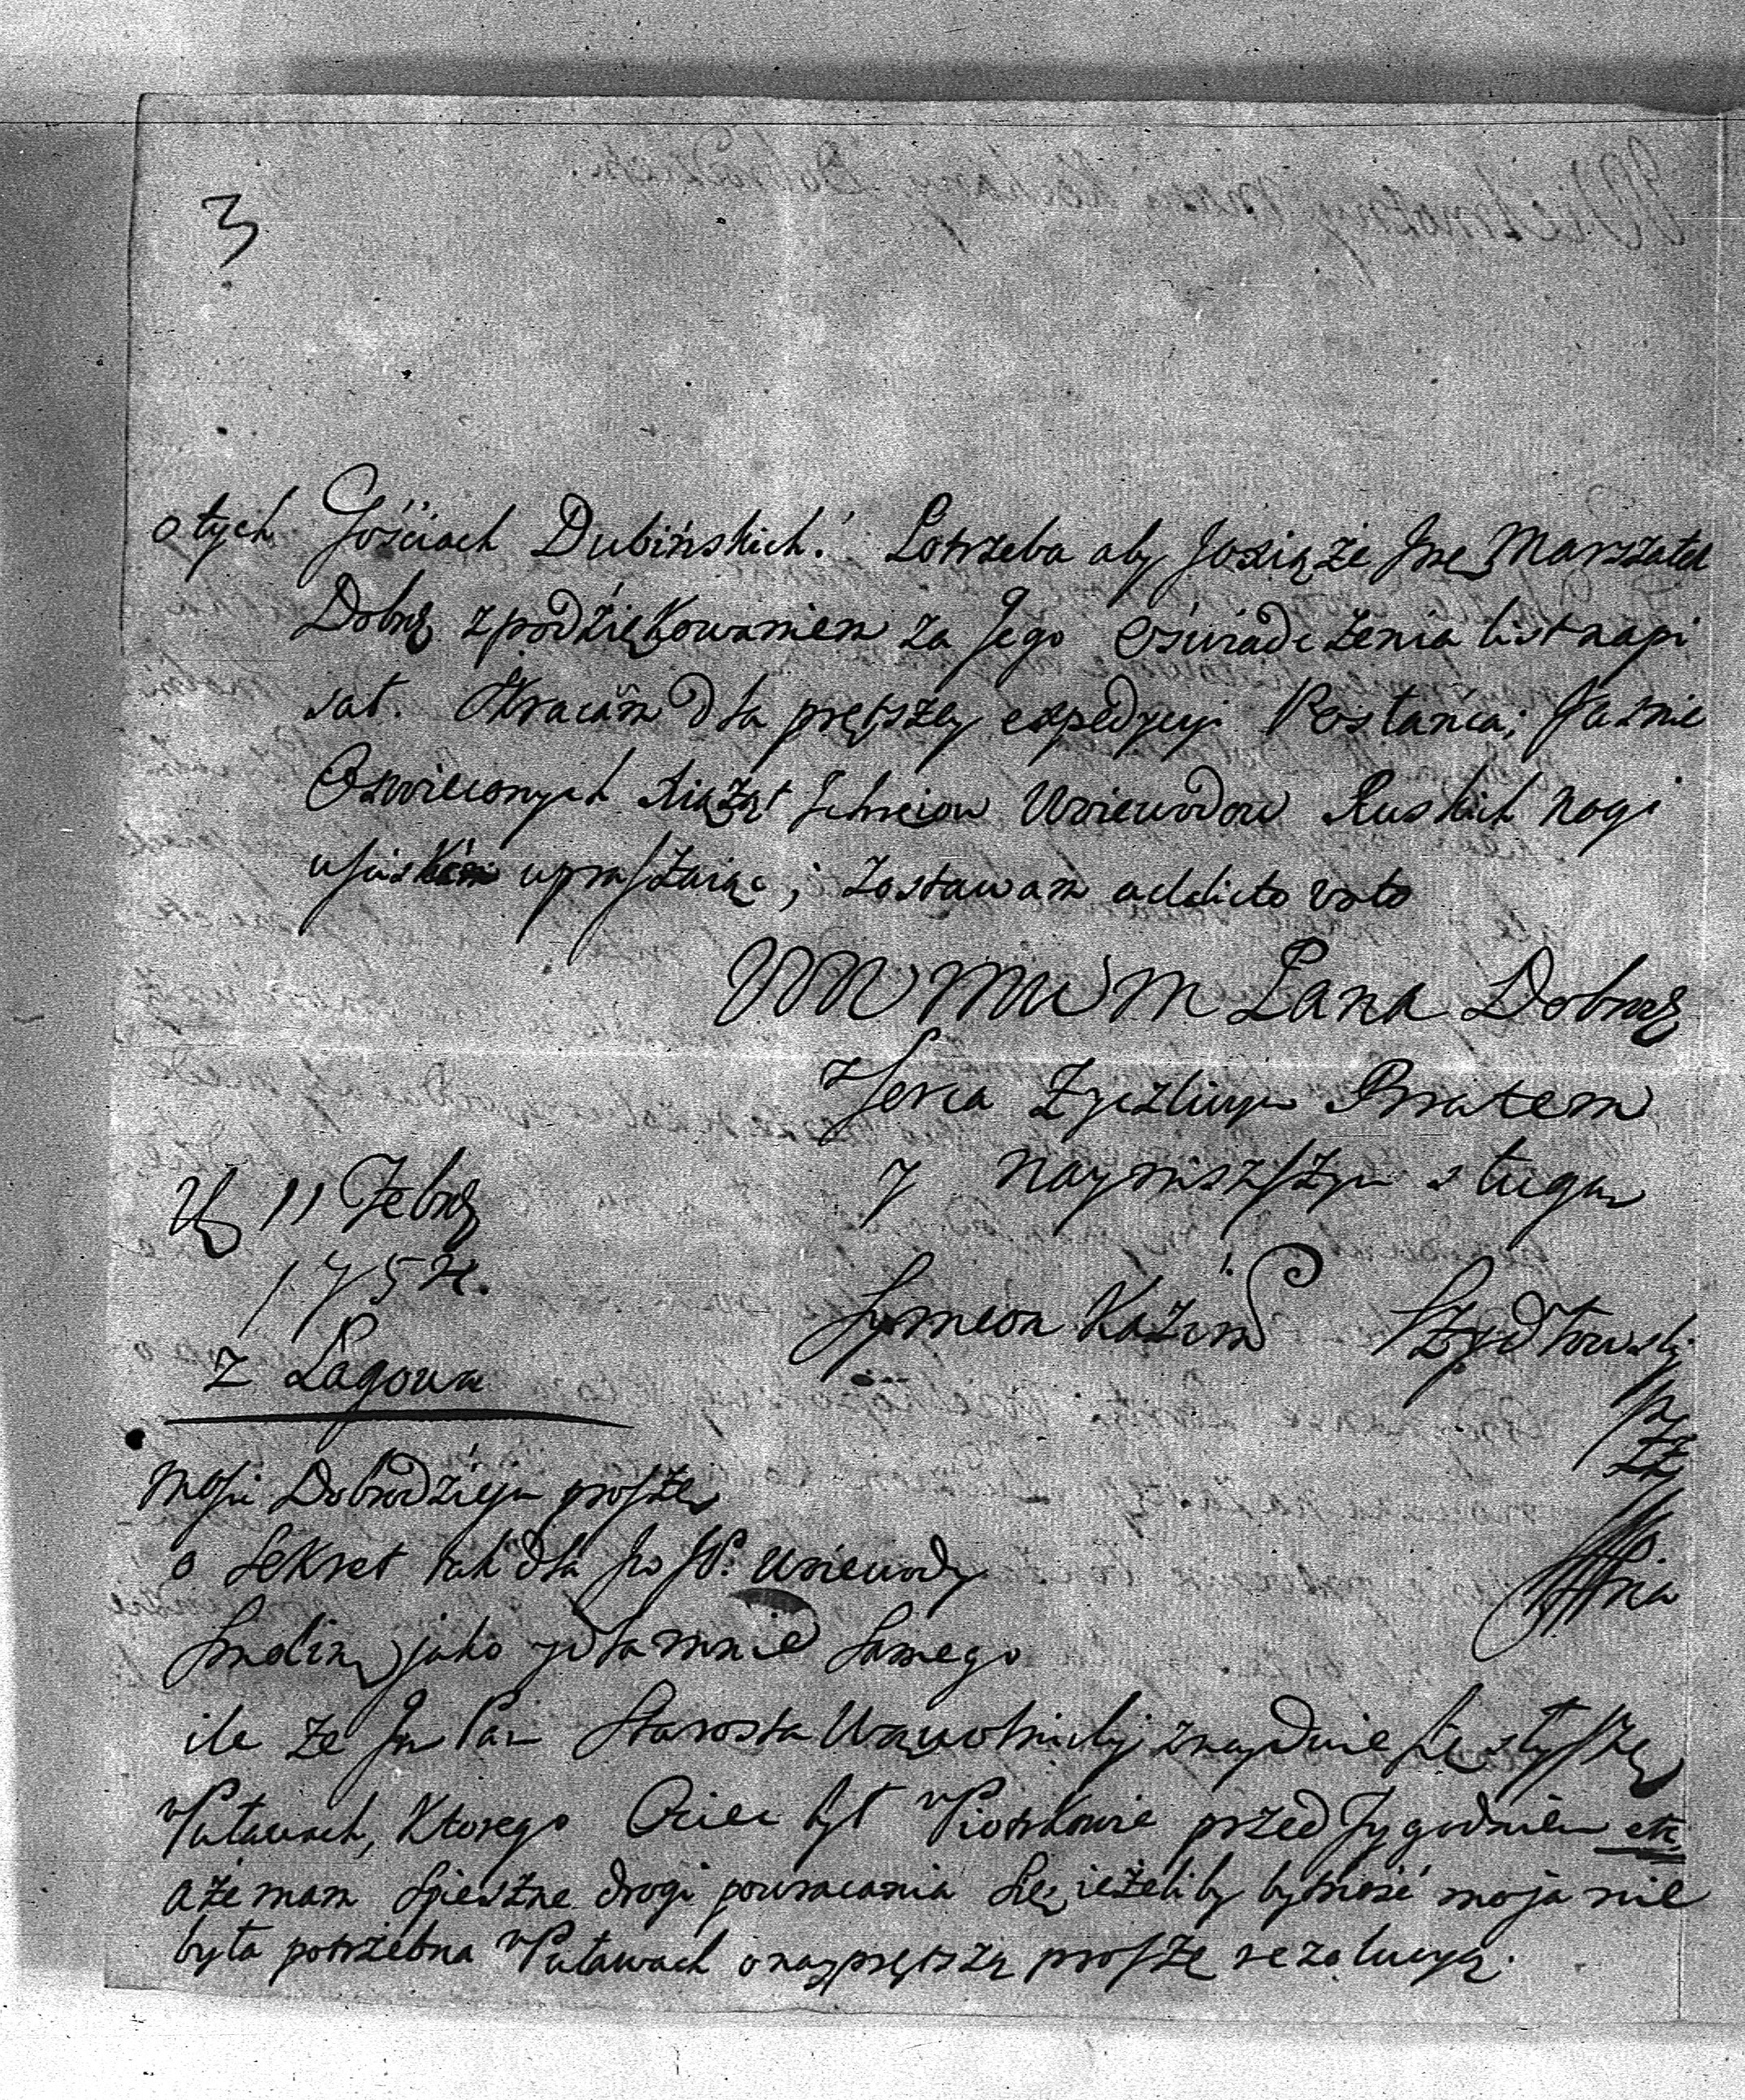 3
o tych Gościach Dubińskich. Potrzeba aby Joxiąże Jmć Marszałek
Dobrą z podziękowaniem za Jego Oświadczenia list napi
sał. Skracam dla prętszey expedycyi Posłańca; Jasnie
Oswieconych Xiążąt Ichmciow Woiewodow Ruskich nogi
uściskam upraszaiąc, zostawam addicto voto
WW MW M Pana Dobrą
z Serca życzliwym Bratem
y naynisszszym sługą
D 11 Febrą
175
z Łagowa
Symeon Kaźim Szydłowski
Mości Dobrodzieju proszę
o sekret tak dla Jo JP. Woiewody
Lublin jako y dla mnie samego
ile że Jm Pan Starosta Wąwolnicky znayduie się słyszę
w Puławach, Ktorego Ociec był w Piotrkowie przed Tygodniem etc
a że mam spieszne drogi powracania się, ieżeliby bytność moja nie
była potrzebna w Puławach o nayprętszą proszę rezolucyą.